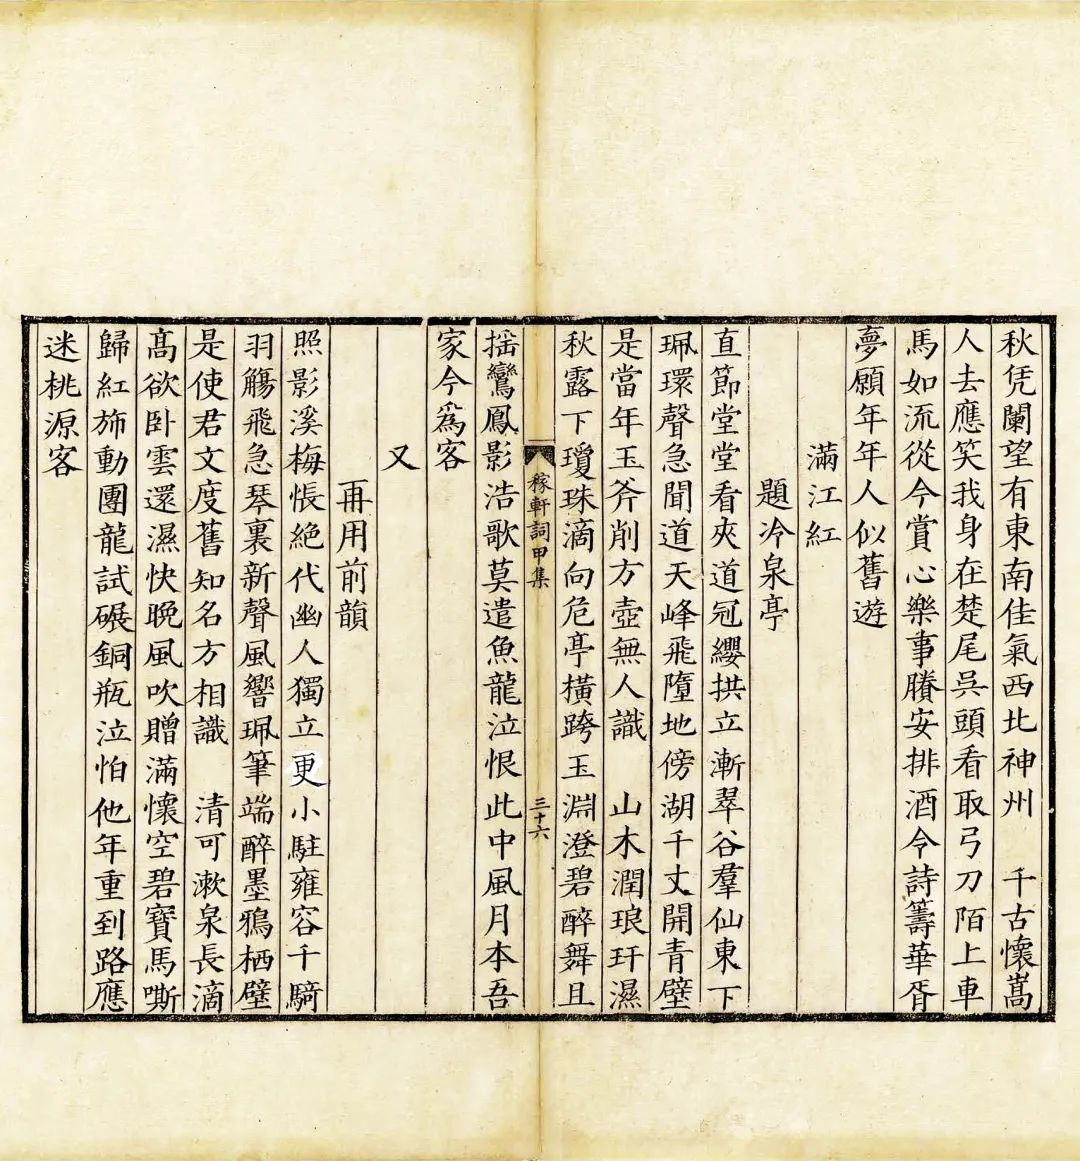 秋凭闌望有東南佳氣西北神州　千古懷嵩
人去應笑我身在楚尾吳頭看取弓刀陌上車
馬如流從今賞心樂事賸安排酒令詩籌華胥
夢願年年人似舊遊
滿江紅
題冷泉亭
直節堂堂看夾道冠纓拱立漸翠谷羣仙東下
珮環聲急聞道天峰飛墮地傍湖千丈開青壁
是當年玉斧削方壺無人識　山木潤琅玕濕
秋露下瓊珠滴向危亭橫跨玉淵澄碧醉舞且
稼軒詞甲集
三十六
揺鸞鳳影浩歌莫遣魚龍泣恨此中風月本吾
家今爲客
又
再用前韻
照影溪梅悵絶代幽人獨立更小駐雍容千騎
羽觴飛急琴裏新聲風響珮筆端醉墨鴉栖壁
是使君文度舊知名方相識　清可漱泉長滴
髙欲卧雲還濕快晚風吹贈滿懷空碧寶馬嘶
歸紅斾動團龍試碾銅瓶泣怕他年重到路應
迷桃源客